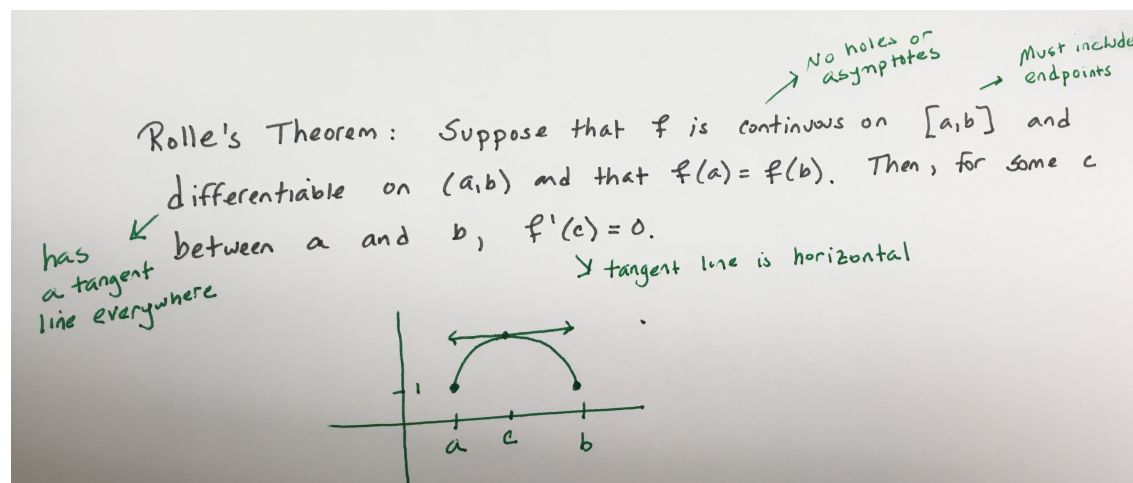 No holes or
asymptotes
Must include
endpoints
Rolle's Theorem: Suppose that f is continuous on [a,b] and
differentiable on (a,b) and that f(a) = f(b). Then, for some c
between a and b, f'(c) = 0.
has
a tangent
line everywhere
tangent line is horizontal
1
a c b